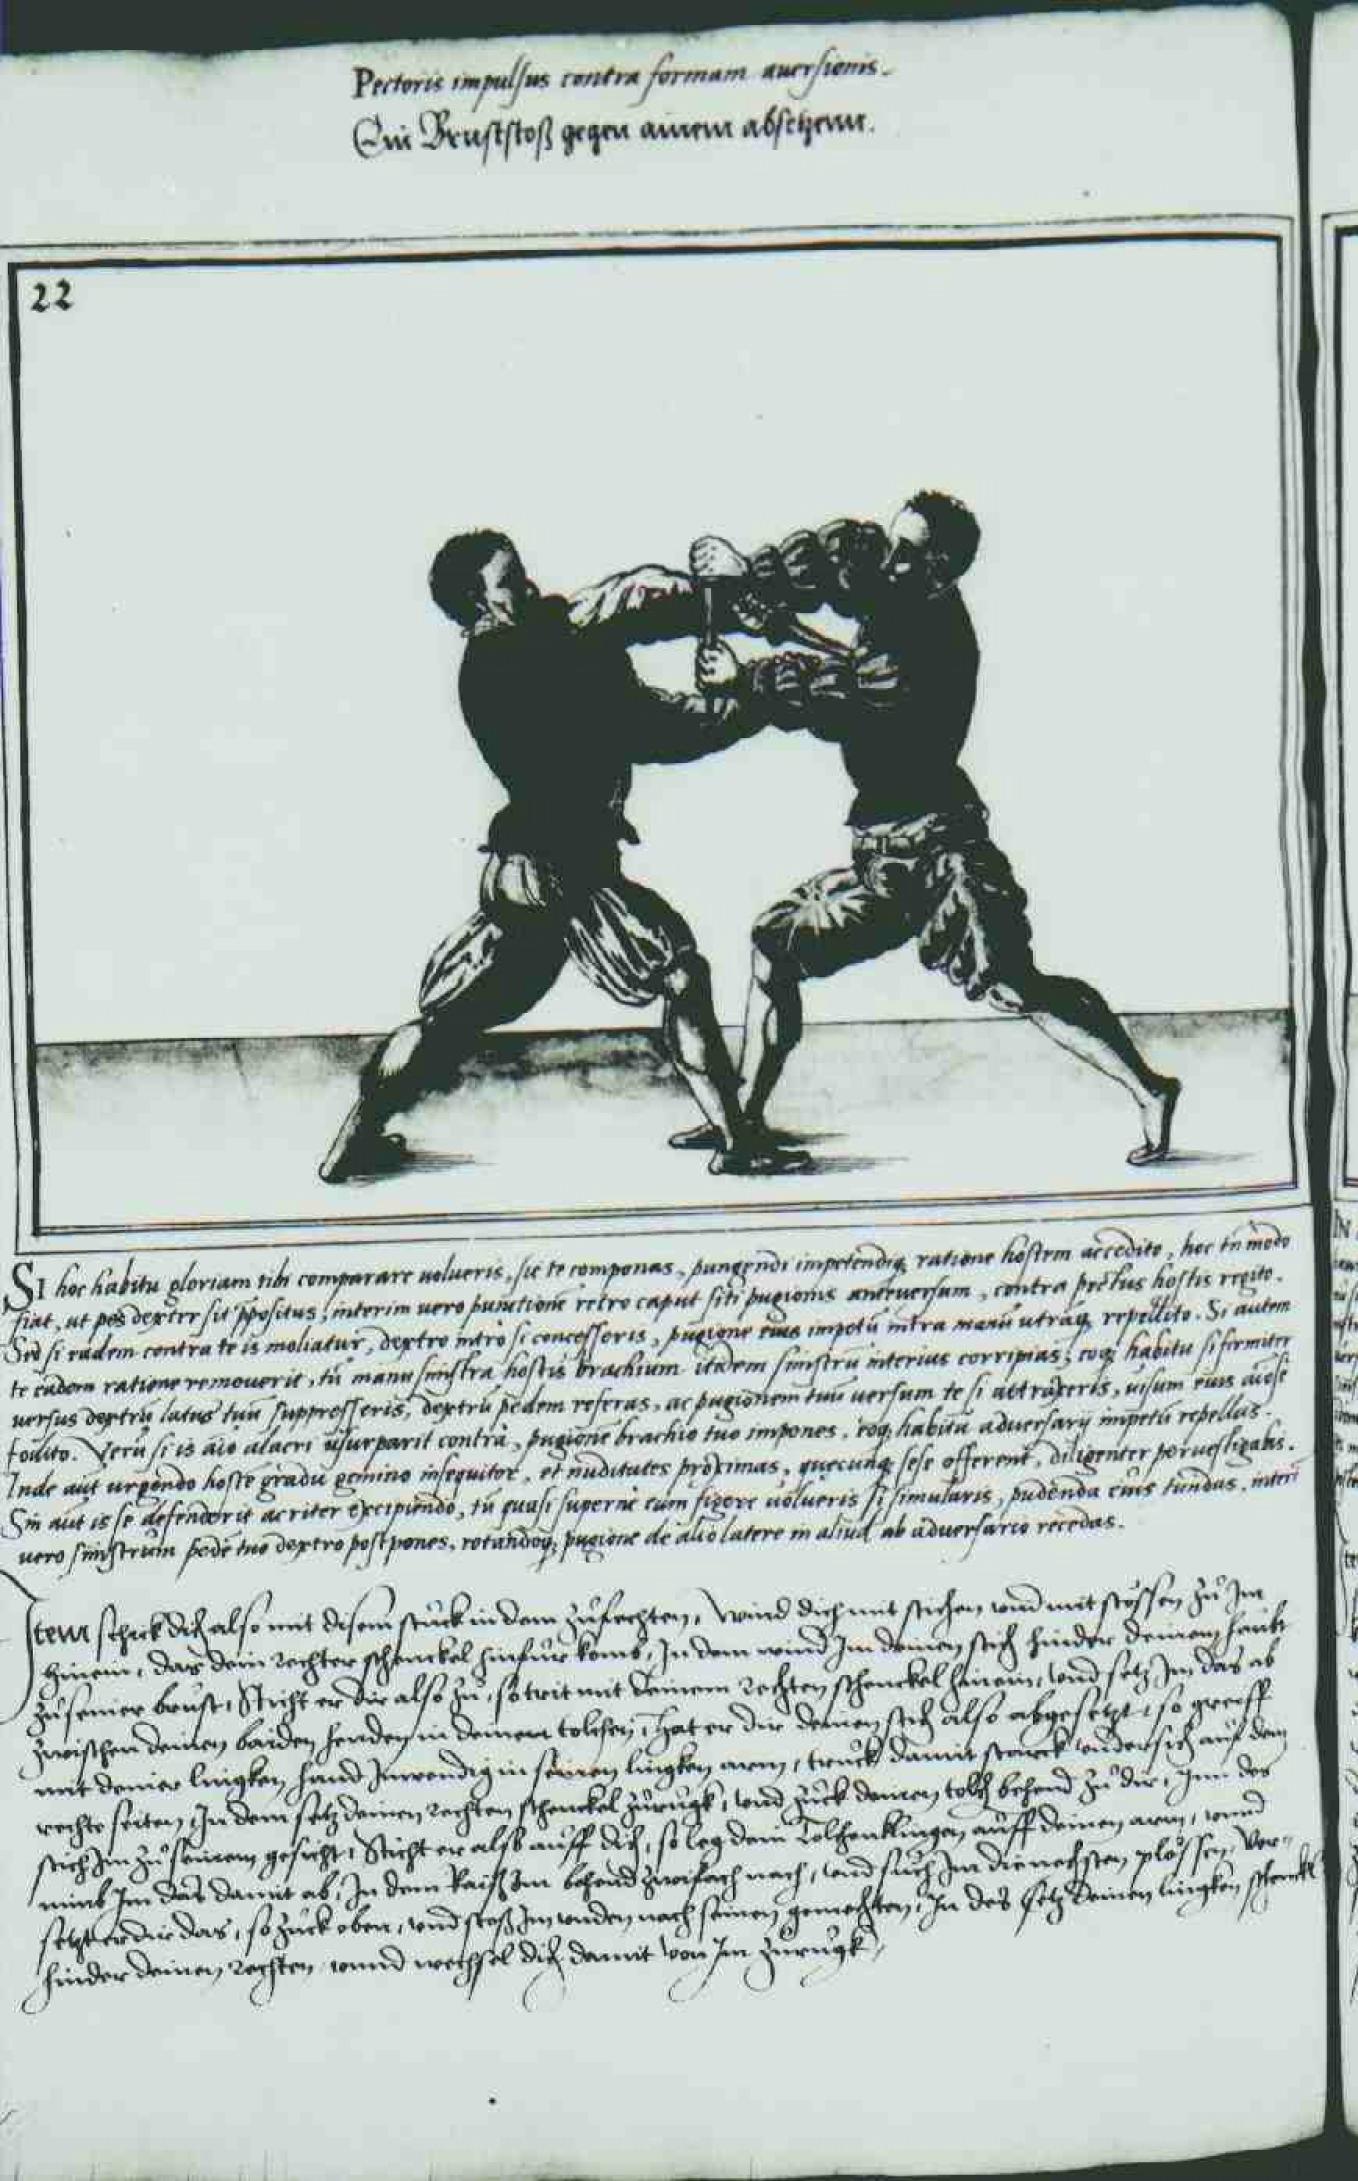 Pectoris impulsus contra formam aversionis.
Ein Bruststoß gegen ainem absetzenn.
22
SI hoc habitu gloriam tibi comparare volueris, sic te componas, pungendi impetendiq ratione hostem accedito, hoc tn modo
fiat, ut pes dexter sit ppositus, interim vero punctione retro caput siti pugionis anteversum, contra pectus hostis regito.
Sed si eadem contra te is moliatur, dextro intro si concesseris, pugione eius impetū intra manū utraq repellito. Si autem
te eadem ratione removerit, tū manu sinistra hostis brachium itidem sinistrū interius corripias, eoq habitu si firmiter
versus dextrū latus tuū suppresseris, dextrū pedem referas, ac pugionem tuū versum te si attraxeris, visum eius
fodito. Verū si is aīo alacri usurparit contra, pugionē brachio tuo impones, eoq habitu adversarij impetū repellas.
Inde aūt urgendo hostē gradu gemino insequitor, et nuditates proximas, quecunq sese offerent, diligenter pervestigabis.
Sin aūt is se defenderit acriter excipiendo, tū quasi superne eum figere volueris si simularis, pudenda eius tundas, interi
vero sinistrum pedē tuo dextro postpones, rotandoq pugione de alio latere in aliud ab adversario recedas.
Item schick dich also mit disem stuck in dem zufechten, wind dich mit stichen vnd mit stössen zu Im
hinein, das dein rechter schenckel hinfür komb, In dem wind Im deinen stich hinder deinem haubt
zu seiner brust, Sticht er dir also zu, so trit mit deinem rechten schenckel hinein, vnd setz Im das ab
zwischen deinen baiden henden in deinem tolchen, Hat er dir deinen stich also abgesetzt, so greiff
mit deiner lingken hand Inwendig in seinen lingken arm, truck damit starck vndersich auf dein
rechte seiten, In dem setz deinen rechten schenckel zurugk, vnd zuck deinen tolch behend zu dir, Inn des
stich Im zu seinem gesicht, Sticht er also auff dich, so leg dein Tolchenklingen auff deinen arm, vnnd
nimb Im das damit ab, In dem Raiß Im behend zwifach nach, vnd such Im die nechsten plössen, Ver-
setzt er dir das, so zuck oben, vnd stoß Im vnden nach seinen gemechten, In des setz deinen lingken schenckel
hinder deinen rechten vnnd wechsel dich damit von Im zurugk.